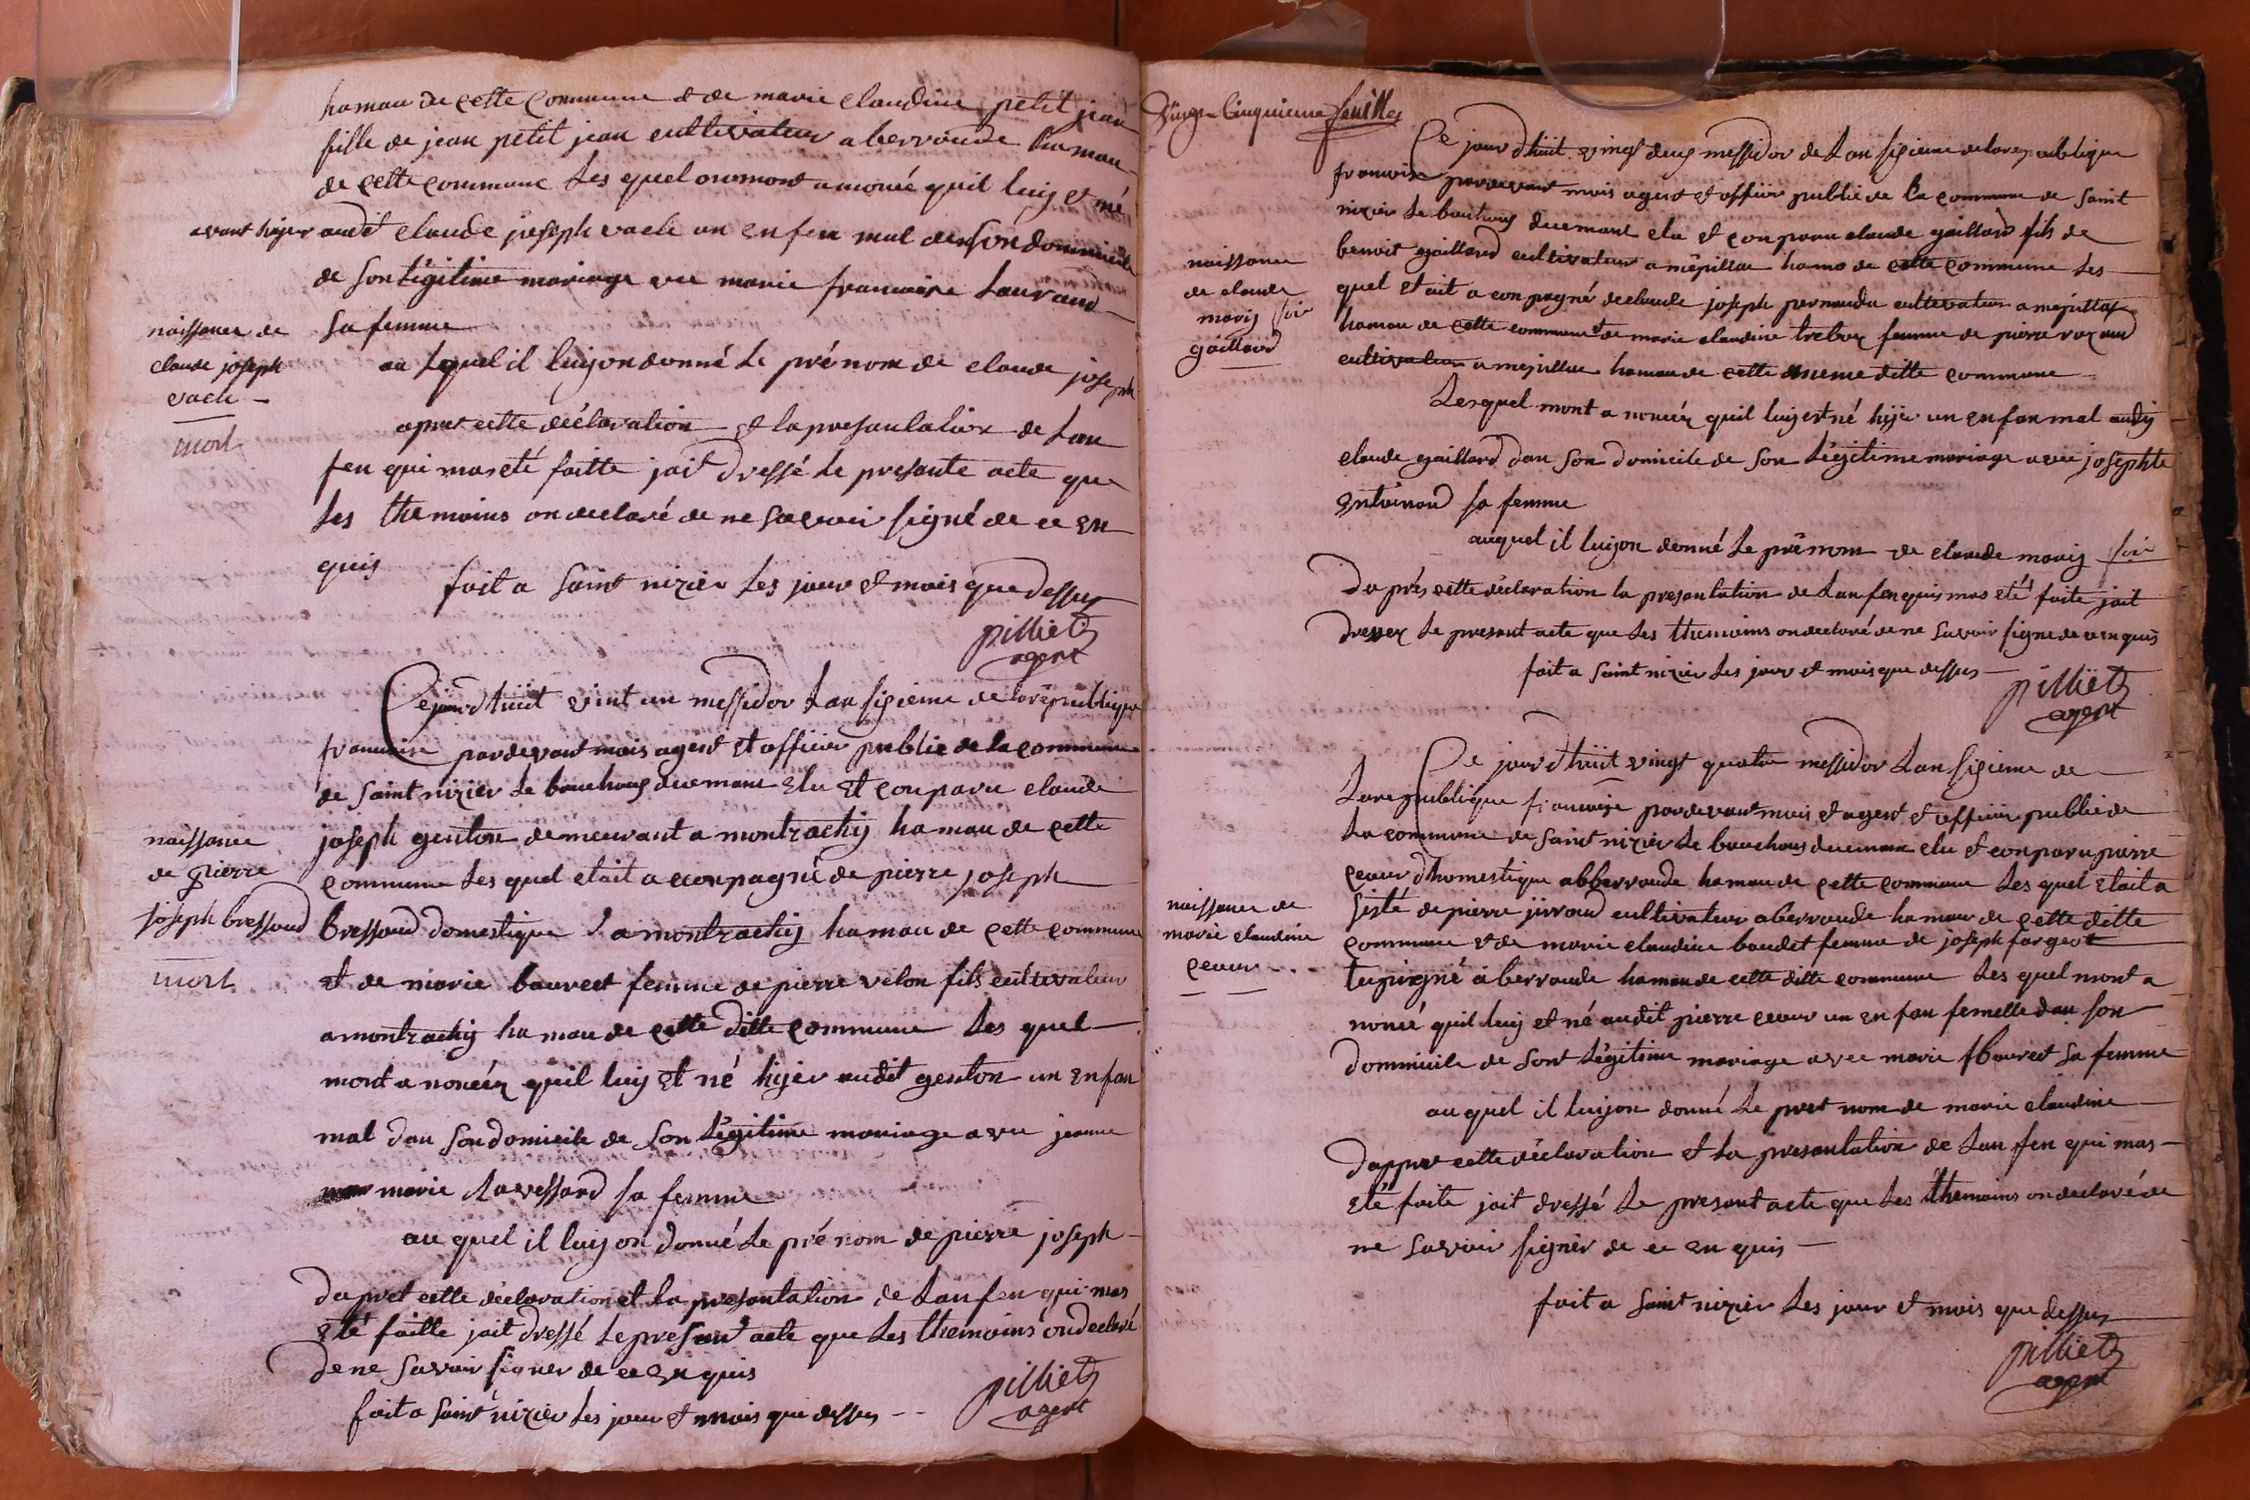 hamau de cette commune et de marie claudine petit jean
fille de jean petit jean cultivateur a berroude hamau
de cette commune les quel on mont anoncé quil luij et né
avant hijer audit claude joseph vacle un enfen mal dans son dommicile
de son légitime mariage avec marie francoise Lauraud
sa femme
naissance de
claude joseph
vacle
mort
au lequel il luij on donné le prénom de claude joseph
apres cette déclaration et la presantation de lan
fen qui mas eté faitte jait dressé le presante acte que
les themoins on declaré de ne savoir signé de ce en
quis
fait a saint nizier les jour et mois que dessus
pilliet
agent
Ce jourdhuit vint un messidor lan sizieme de la republique
francoise pardevant mois agent et officier public de la commune
de saint nizier le bouchoux duemant elu et conparu claude
joseph genton demeurant a montrachij hamau de cette
commune les quel etait aconpagné de pierre joseph
naissance
de pierre
joseph bressoud
mort
bressoud domestique a montrachij hamau de cette commune
et de marie bouvret femme de pierre velon fils cultivateur
a montrachij hamau de cette ditte commune les quel
mont anoncér quil luij et né hijer audit genton un enfan
mal dan son domicile de son légitime mariage avec jeanne
marie Lavessard sa femme
au quel il luij on donné le pré nom de pierre joseph
dapret cette déclaration et la presantation de lanfen qui mas
eté faitte jait dressé le present acte que les themoins on declaré
de ne savoir signer de ce en quis
fait a saint nizier les jour et mois que dessus
pilliet
agent
Vingt Cinquieme feuilles
Ce jour dhuit vingt deux messidor de lan sizieme de la republique
francoise pardevant mois agent et officier public de la commune de saint
nizier le bouchoux duemant elu et conparu claude gaillard fils de
benoit gaillard cultivateur a mépillat hamo de cette commune les
quel etait aconpagné de claude joseph pernaudu cultivateur a mepillat
hamau de cette commune et de marie claudine treboz femme de pierre rozaud
cultivateur a mepillat hamau de cette meme ditte commune
naissance
de claude
marij
gaillard
Lesquel mont anoncér quil luij est né hijer un enfan mal audij
claude gaillard dan son domicile de son légitime mariage avec josephte
entoinaud sa femme
auquel il luijon donné le prénom de claude marij
da prés cette déclaration la presantation de lanfen quis mas eté faite jait
dresser le presant acte que les themoins on declaré de ne savoir signe de ce en quis
fait a saint nizier les jour et mois que dessus
pilliet
agent
Ce jour dhuit vingt quatre messidor lan sizieme de
la republique francoise pardevant mois et agent et officier public de
la commune de saint nizier le bouchoux duemant elu et conparu pierre
ceour dhomestique abberroude hamau de cette commune les quel etait a
sisté de pierre jiiraud cultivateur a berroude hamau de cette ditte
commune et de marie claudine baudet femme de joseph fargeot
naissance de
marie claudine
ceour
tupignié a berroude hamau de cette ditte commune les quel mont a
noncé quil luij et né audit pierre ceour un enfan femelle dan son
dommicile de sont légitime mariage avec marie bouvret sa femme
au quel il luijon donné le pret nom de marie claudine
dappret cette déclaration et la presantation de lan fen qui mas
eté faite jait dressé le presant acte que les themoins on declaré de
ne savoir signér de ce en quis
fait a saint nizier les jour et mois que dessus
pilliet
agent